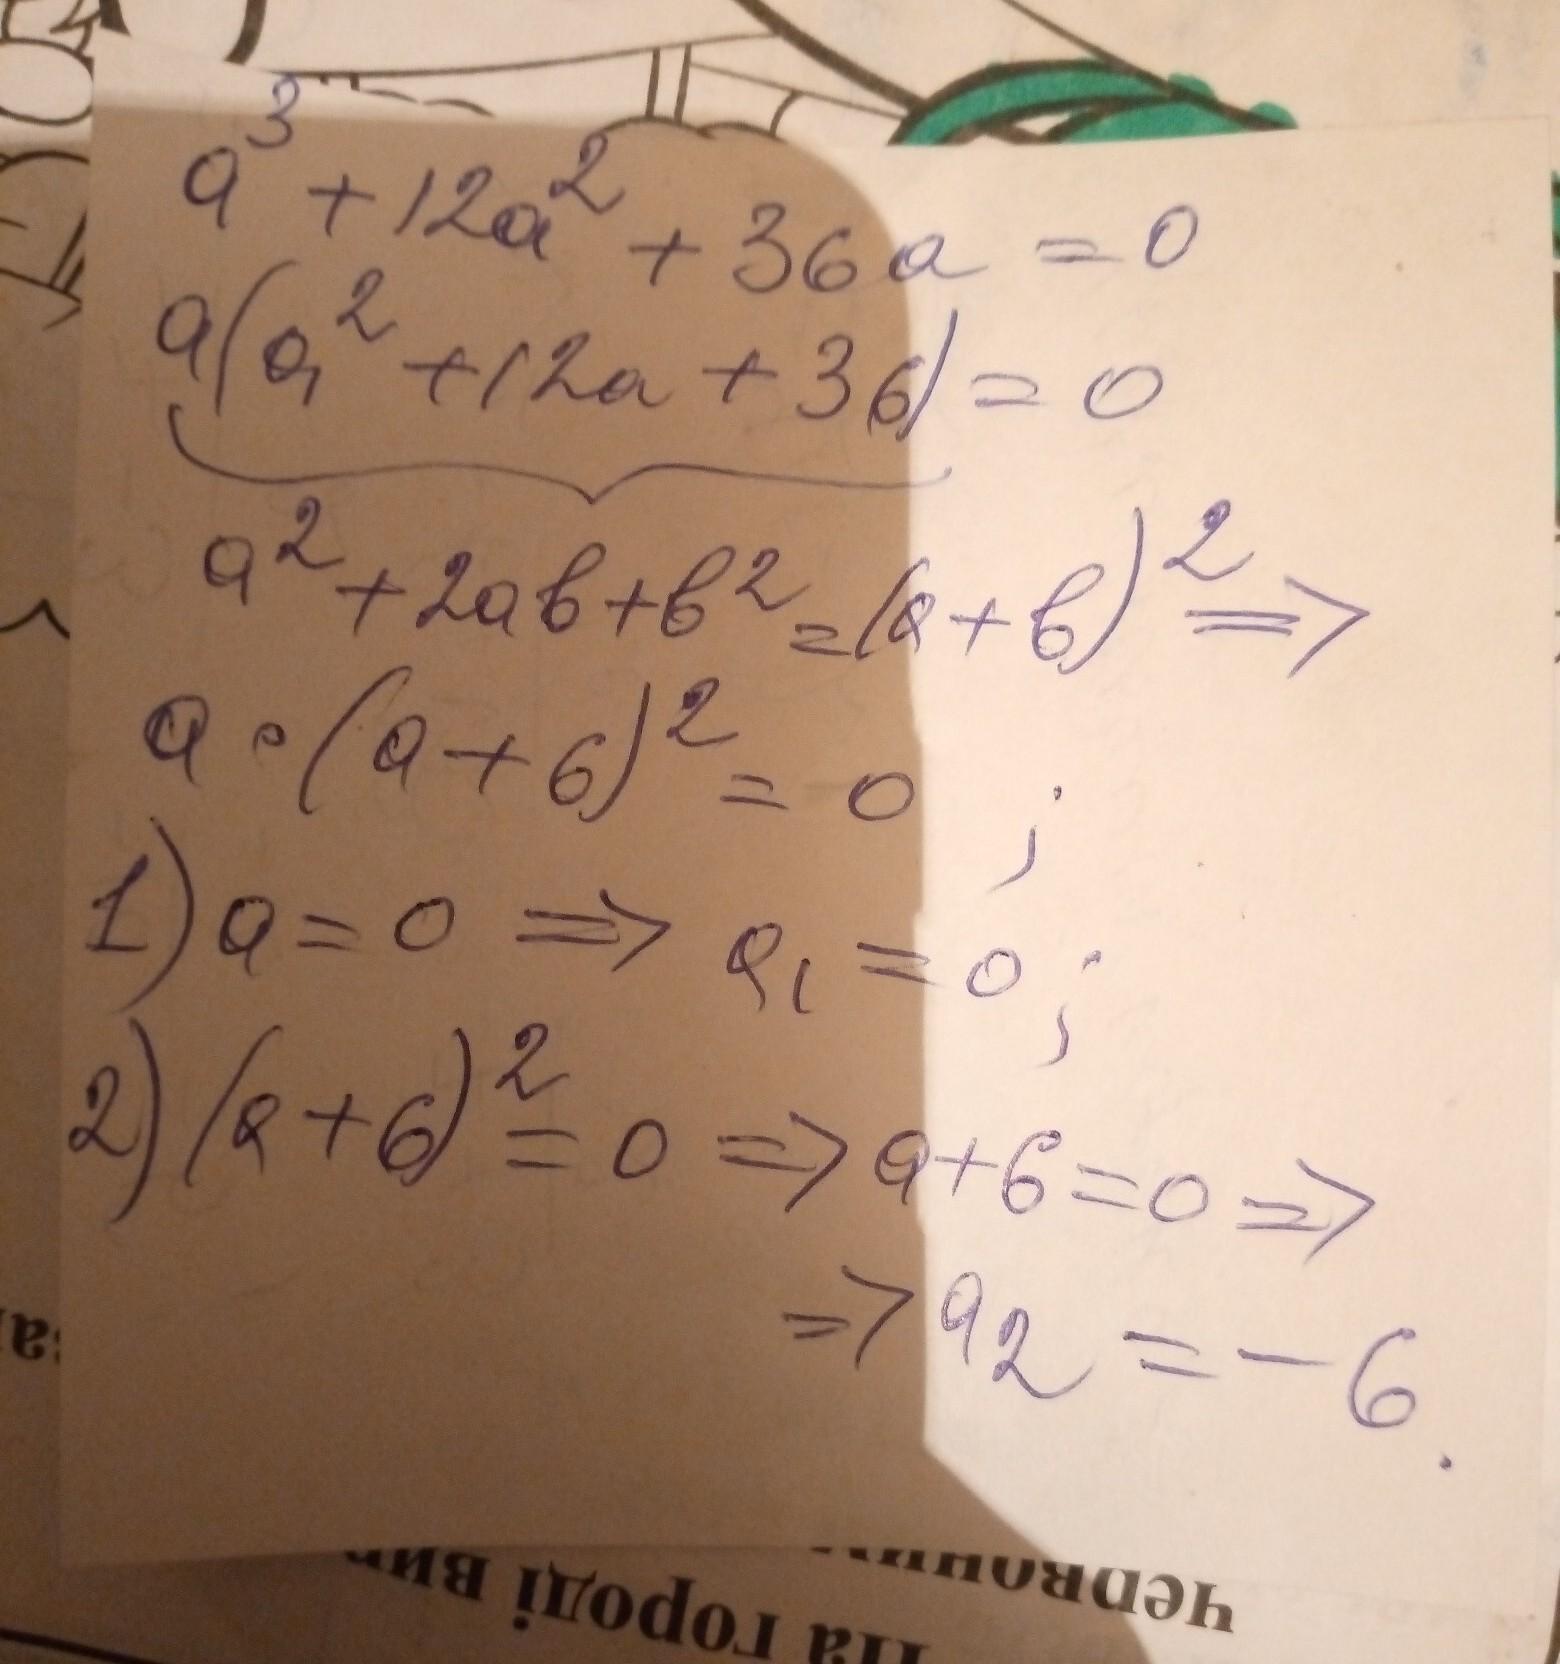 a³ + 12a² + 36a = 0
a(a² + 12a + 36) = 0
a² + 2ab + b² = (a + b)² ⇒
a · (a + 6)² = 0 ;
1) a = 0 ⇒ a₁ = 0 ;
2) (a + 6)² = 0 ⇒ a + 6 = 0 ⇒
⇒ a₂ = - 6 .
На городі
червоним